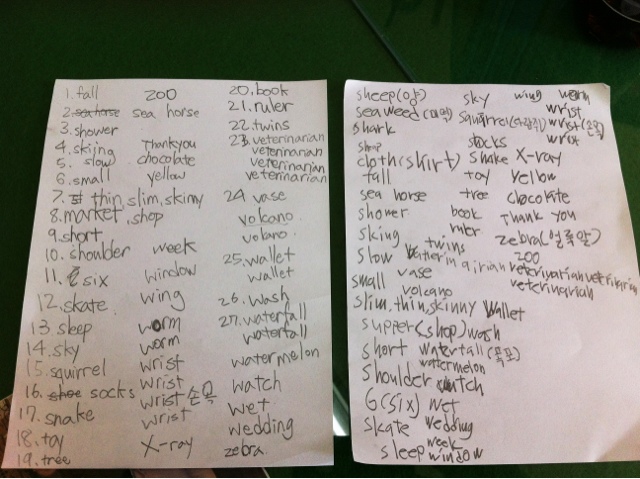 1. fall zoo 20. book
2. sea horse sea horse 21. ruler
3. shower 22. twins
4. skijng Thankyou 23. veterinarian
veterinarian
5. slow chocolate veterinarian
6. small yellow veterinarian
7. thin, slim, skinny 24 vase
8. market, shop volcano
9. short volcano
10. shoulder week 25. wallet
11. six window wallet
12. skate wing 26. wash
13. sleep worm 27. waterfall
14. sky worm waterfall
15. squirrel wrist watermelon
16. shoe socks wrist watch
wrist 손목
17. snake wrist wet
18. toy wedding
19. tree X-ray zebra
sheep(양) sky wing worm
sea weed(미역) squirrel(다람쥐) wrist
shark wrist(손목)
shop socks wrist
cloth(skirt) snake X-ray
fall toy yellow
sea horse tree chocolate
shower book Thank you
sking ruler zebra(얼룩말)
slow twins zoo
veterinarian veterinarian
small vase veterinarian
volcano
slim, thin, skinny wallet
supper(shop) wash
short waterfall(폭포)
watermelon
shoulder watch
6(six) wet
skate wedding
week
sleep window